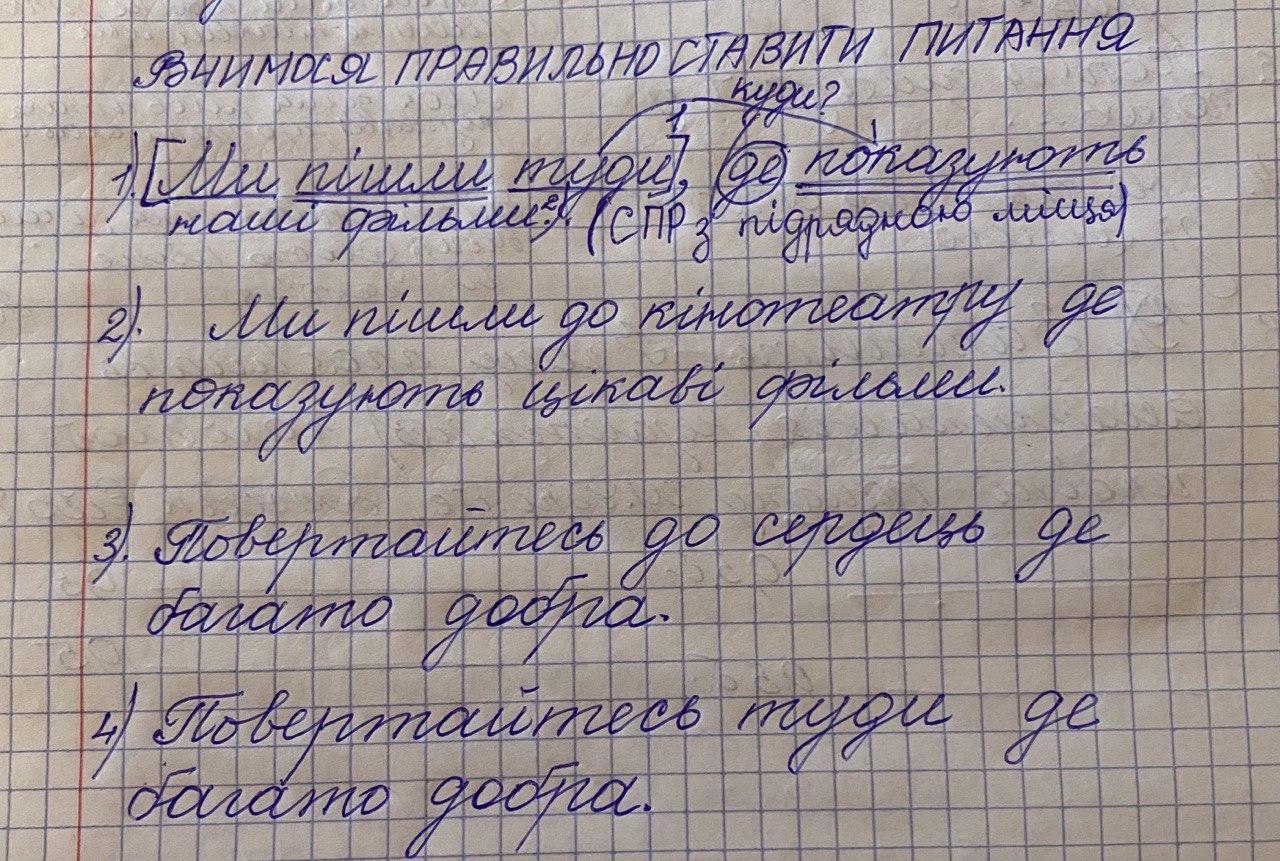 ВЧИМОСЯ ПРАВИЛЬНО СТАВИТИ ПИТАННЯ
куди?
1). [Ми пішли туди]¹, (де показують
наші фільми)². (СПР з підрядною місця)
2). Ми пішли до кінотеатру де
показують цікаві фільми.
3). Повертайтесь до сердець де
багато добра.
4) Повертайтесь туди де
багато добра.